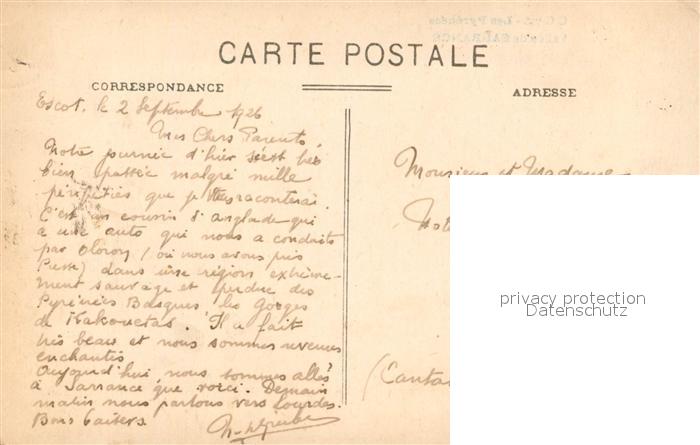 CARTE POSTALE
CORRESPONDANCE
ADRESSE
Escot, le 2 Septembre 1926
Mes Chers Parents,
Notre journée d'hier s'est très
bien passée malgré mille
péripéties que je vous raconterai.
C'est un cousin d'Anglade qui
a une auto qui nous a conduits
par Oloron (où nous avons pris
Pierre) dans une région extrême-
ment sauvage et perdue des
Pyrénées Basques les Gorges
de Kakouetas. Il a fait
très beau et nous sommes revenus
enchantés
Aujourd'hui nous sommes allés
à Sarrance que voici. Demain
matin nous partons vers Lourdes.
Bons baisers.
Monsieur et Madame
(Canta
privacy protection
Datenschutz